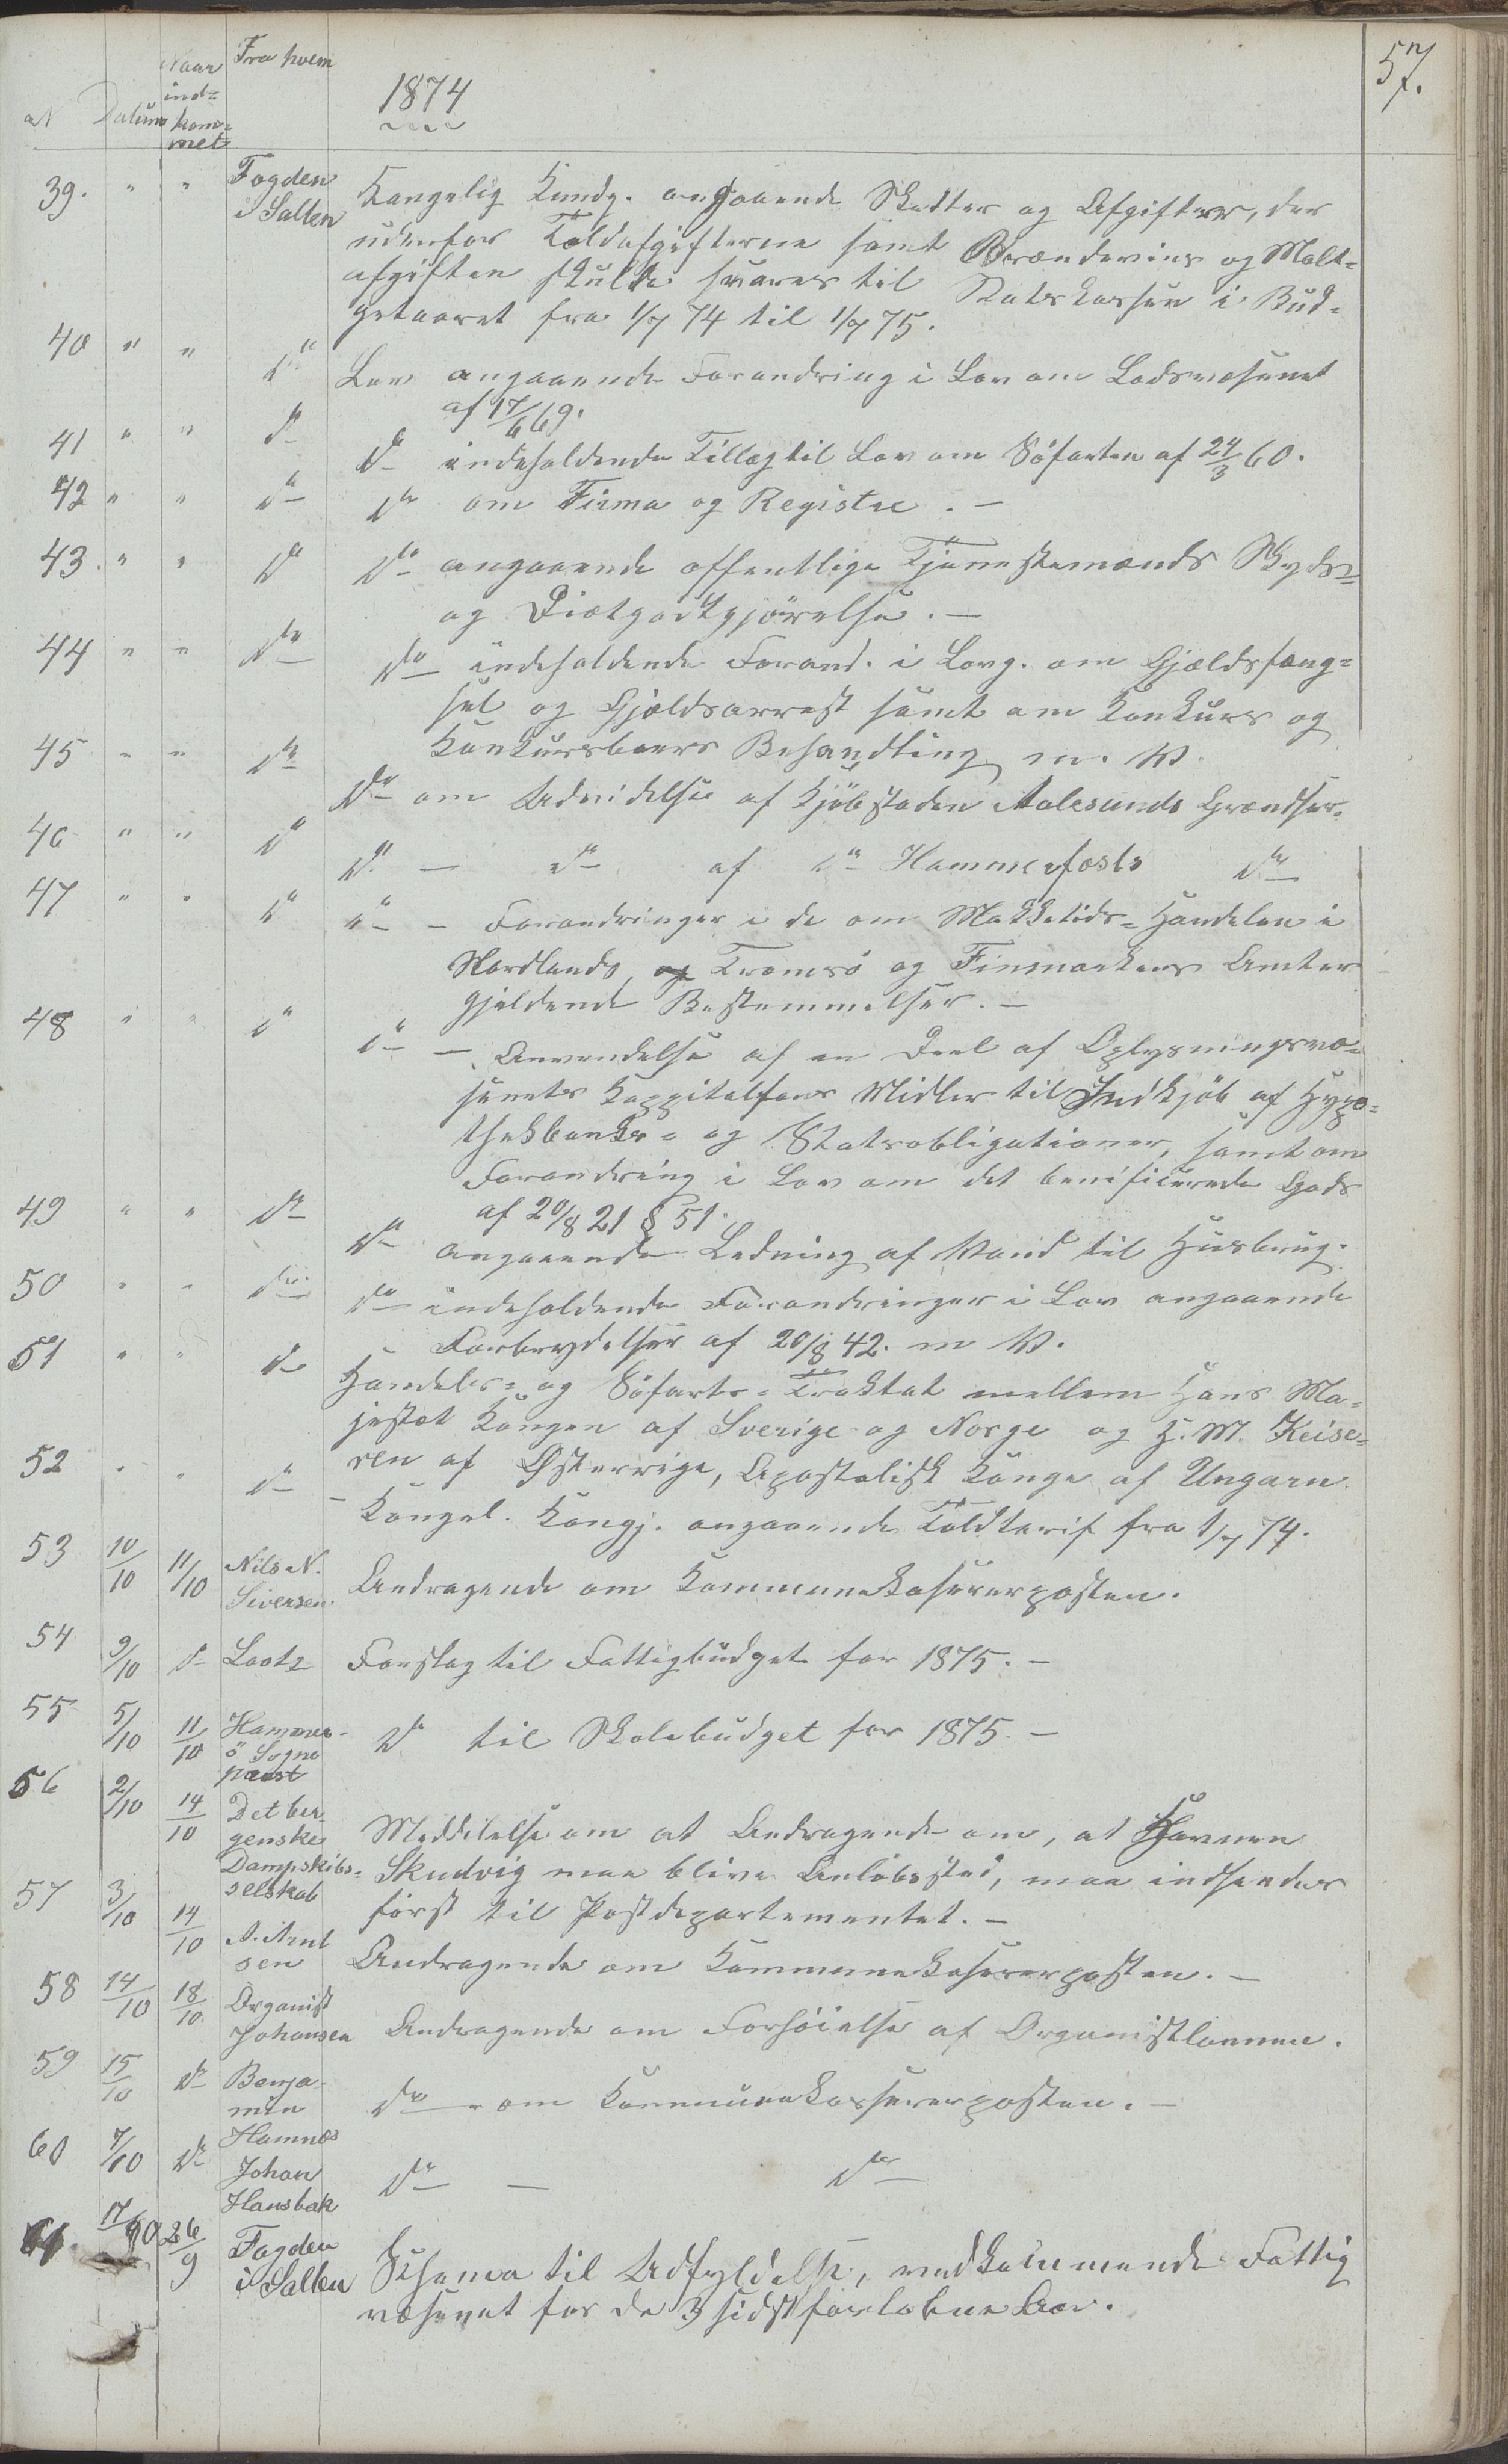 57.
Naar ind= kom= met
Fra hvem
N Datum
1874
39. " " Fogden i Salten Kongelig Kundg. angaaende Skatter og Afgifter, der
udenfor Toldafgifterne samt Brændevins og Malt=
afgiften skulde svares til Statskassen i Bud=
getaaret fra 1/7 74 til 1/7 75.
40 " " Do Lov angaaende Forandring i Lov om Lodsvæsenet
af 17/6 69.
41 " " do Do indeholdende Tillæg til Lov om Söfarten af 24/3 60.
42 " " do Do om Firma og Registre. —
43. " " Do Do angaaende offentlige Tjenestemænds Skyds=
og Diætgodtgjörelse. —
44 " " Do Do indeholdende Forand. i Lovg. om Gjældsfæng=
sel og Gjældsarrest samt om Konkurs og
Konkursboers Behandling m. V.
45 " " Do Do om Udvidelse af Kjöbstaden Aalesunds Grændser.
46 " " Do Do — do af do Hammerfests do
47 " " Do do — Forandringer i de om Markeds=Handelen i
Nordlands, og Tromsö og Finmarkens Amter
gjeldende Bestemmelser. —
48 " " do do — Anvendelse af en Deel af Oplysningsvæ=
senets Kappitalfons Midler til Indkjöb af Hypo=
thekbanks= og Statsobligationer, samt om
Forandring i Lov om det benificerede Gods
af 20/8 21 § 51.
49 " " Do Do angaaende Ledning af Vand til Husbrug.
50 " " Do Do indeholdende Forandringer i Lov angaaende
Forbrydelser af 20/8 42. m V.
51 " " do Handels= og Söfarts=Traktat mellem Hans Ma=
jestæt Kongen af Sverige og Norge og H. M. Keise=
ren af Østerrige, Apostolisk Konge af Ungarn.
52 " " do — Kongel. Kongj. angaaende Toldtarif fra 1/7 74.
53 10/10 11/10 Nils N. Siversen Andragende om Kommunekasererposten.
54 9/10 do Lootz Forslag til Fattigbudget for 1875. —
55 5/10 11/10 Hammer= ö Sogne præst Do til Skolebudget for 1875. —
56 2/10 14/10 Det ber= genske Dampskibs= selskab Meddelelse om at Andragende om, at Havnen
Skudvig maa blive Anlöbssted, maa indsendes
först til Postdepartementet. —
57 3/10 14/10 A. Arnt sen Andragende om Kommunekasererposten. —
58 14/10 18/10 Organist Johansen Andragende om Forhöielse af Organistlönnen.
59 15/10 Do Benja= min Hamnes Do — om Kommunekassererposten. —
60 7/10 Do Johan Hansbak Do — do
61. 17/10 26/9 Fogden i Salten Schema til Udfyldelse, vedkommende Fattig
væsenet for de 3 sidst forlobne Aar.